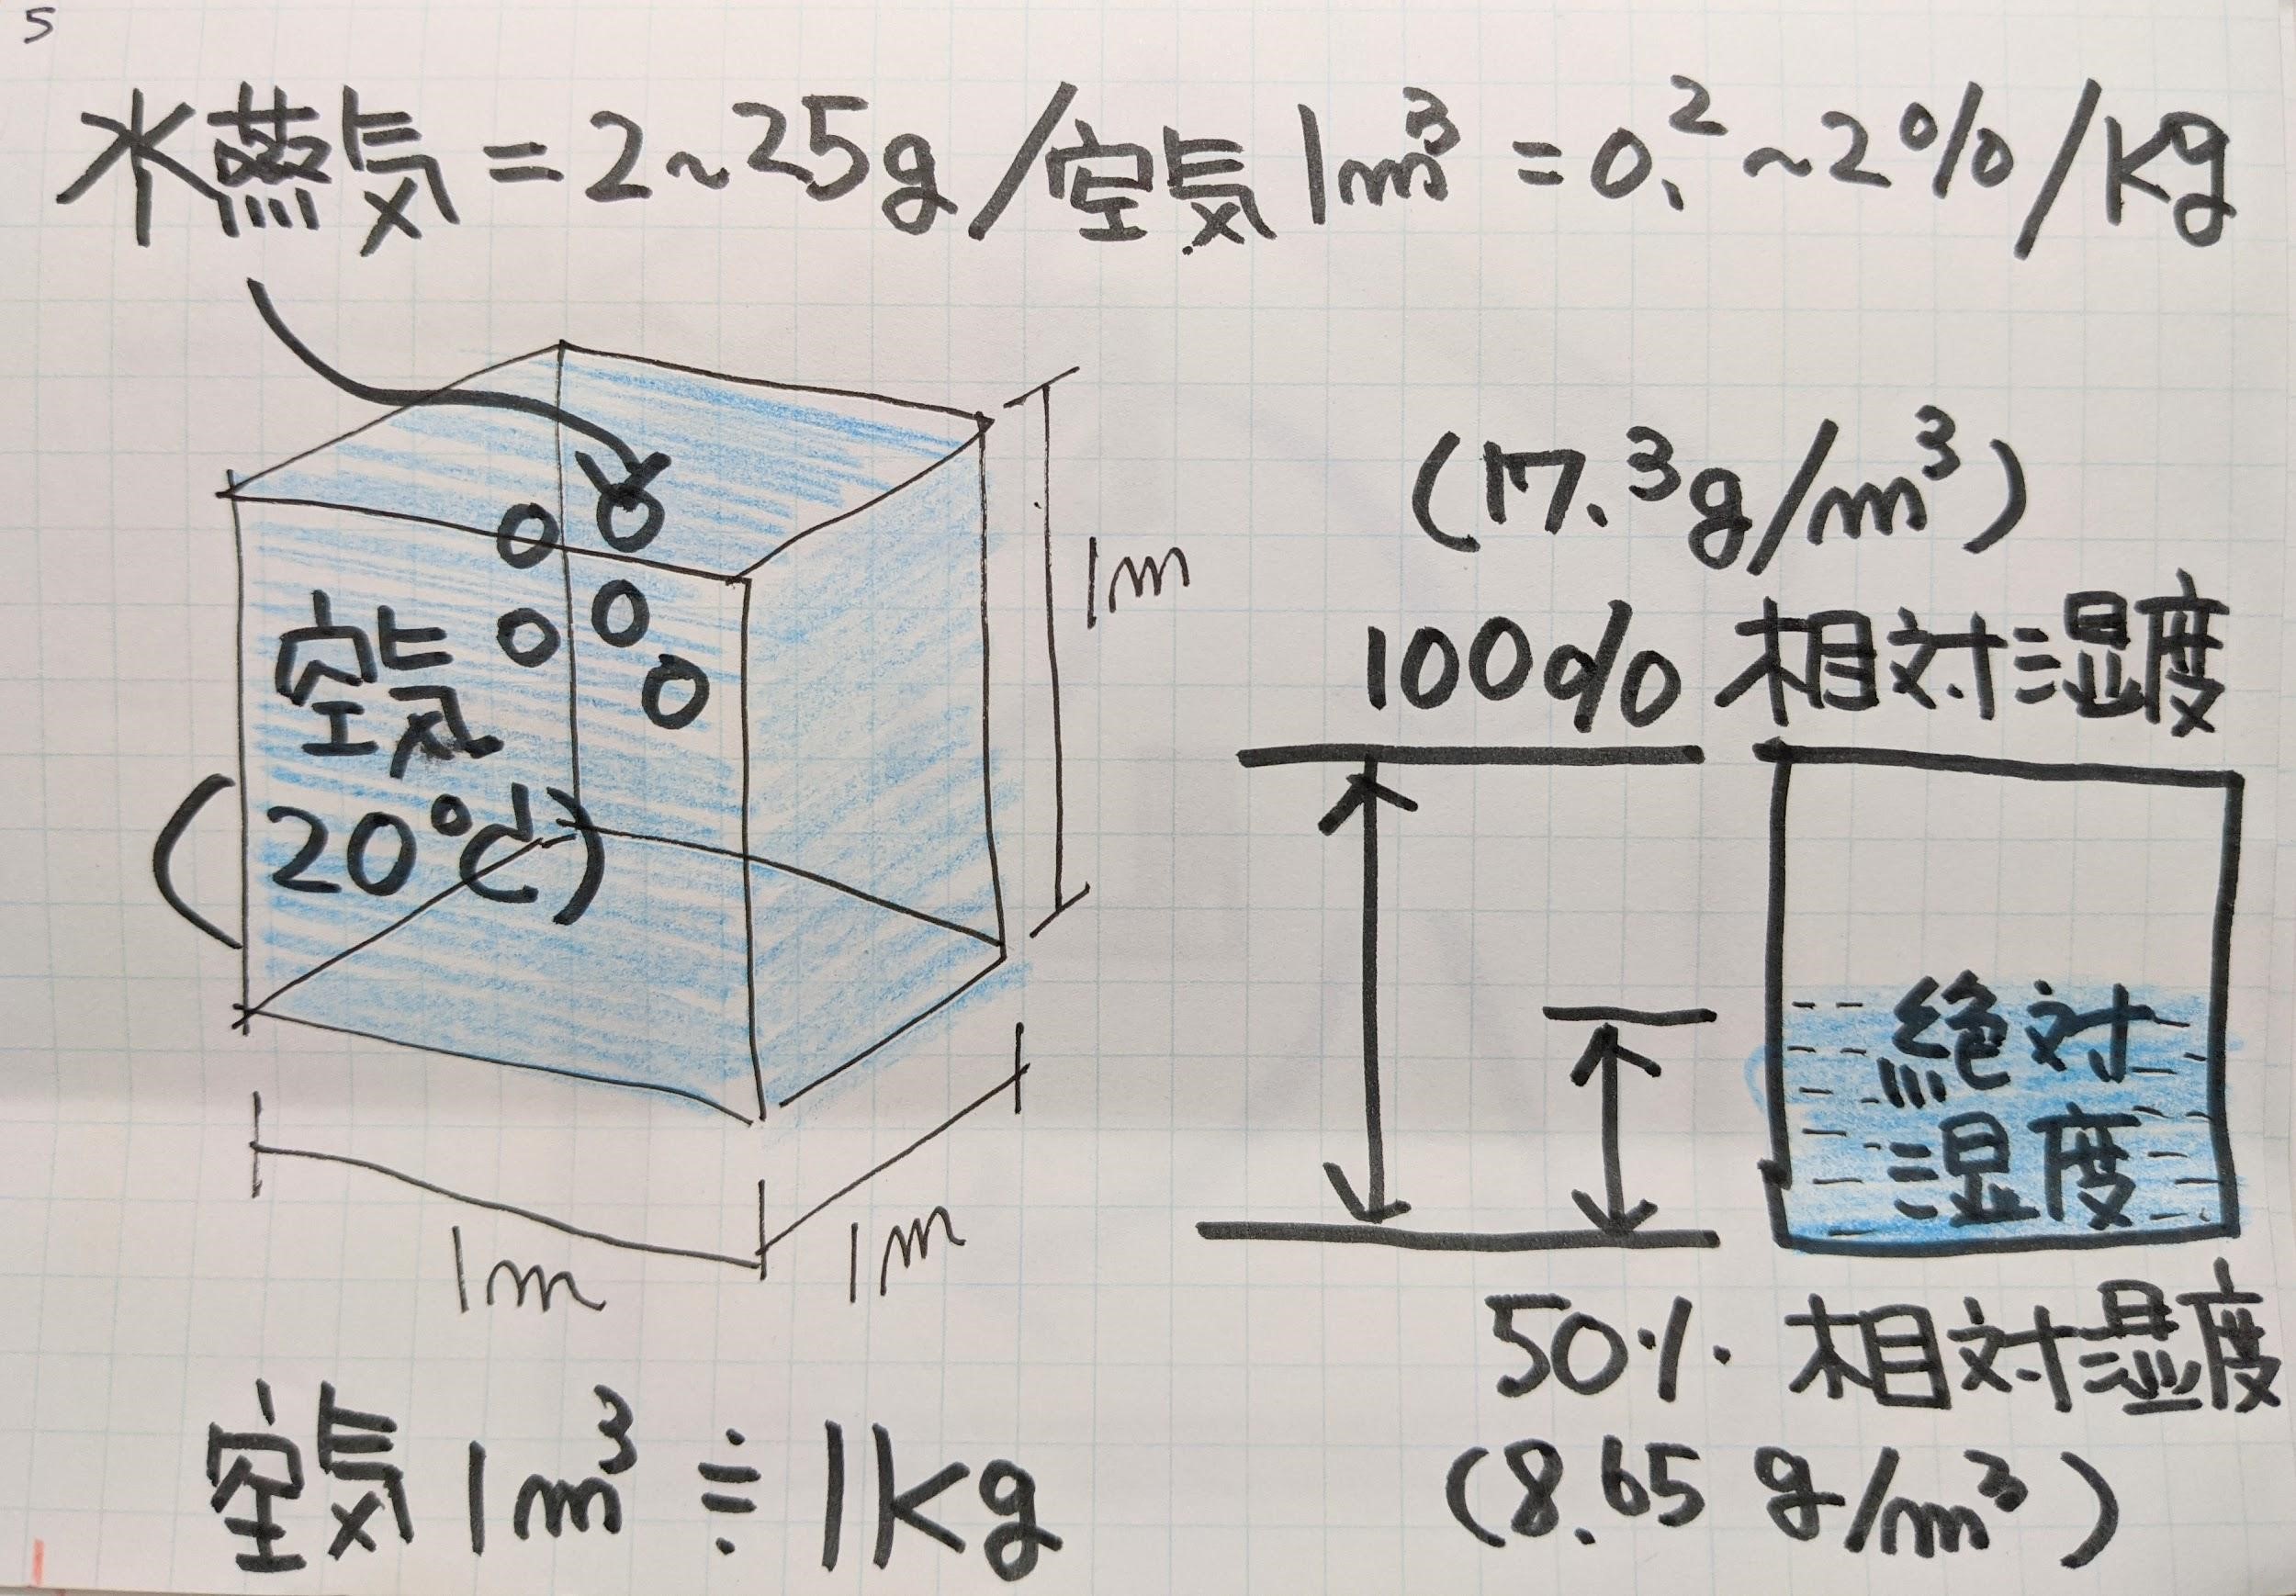 5
水蒸気=2~25g/空気1m³=0.²~2%/Kg
空気
(20℃)
1m
1m
1m
空気1m³≒1Kg
(17.³g/m³)
100% 相対湿度
絶対
湿度
50% 相対湿度
(8.65 g/m³)